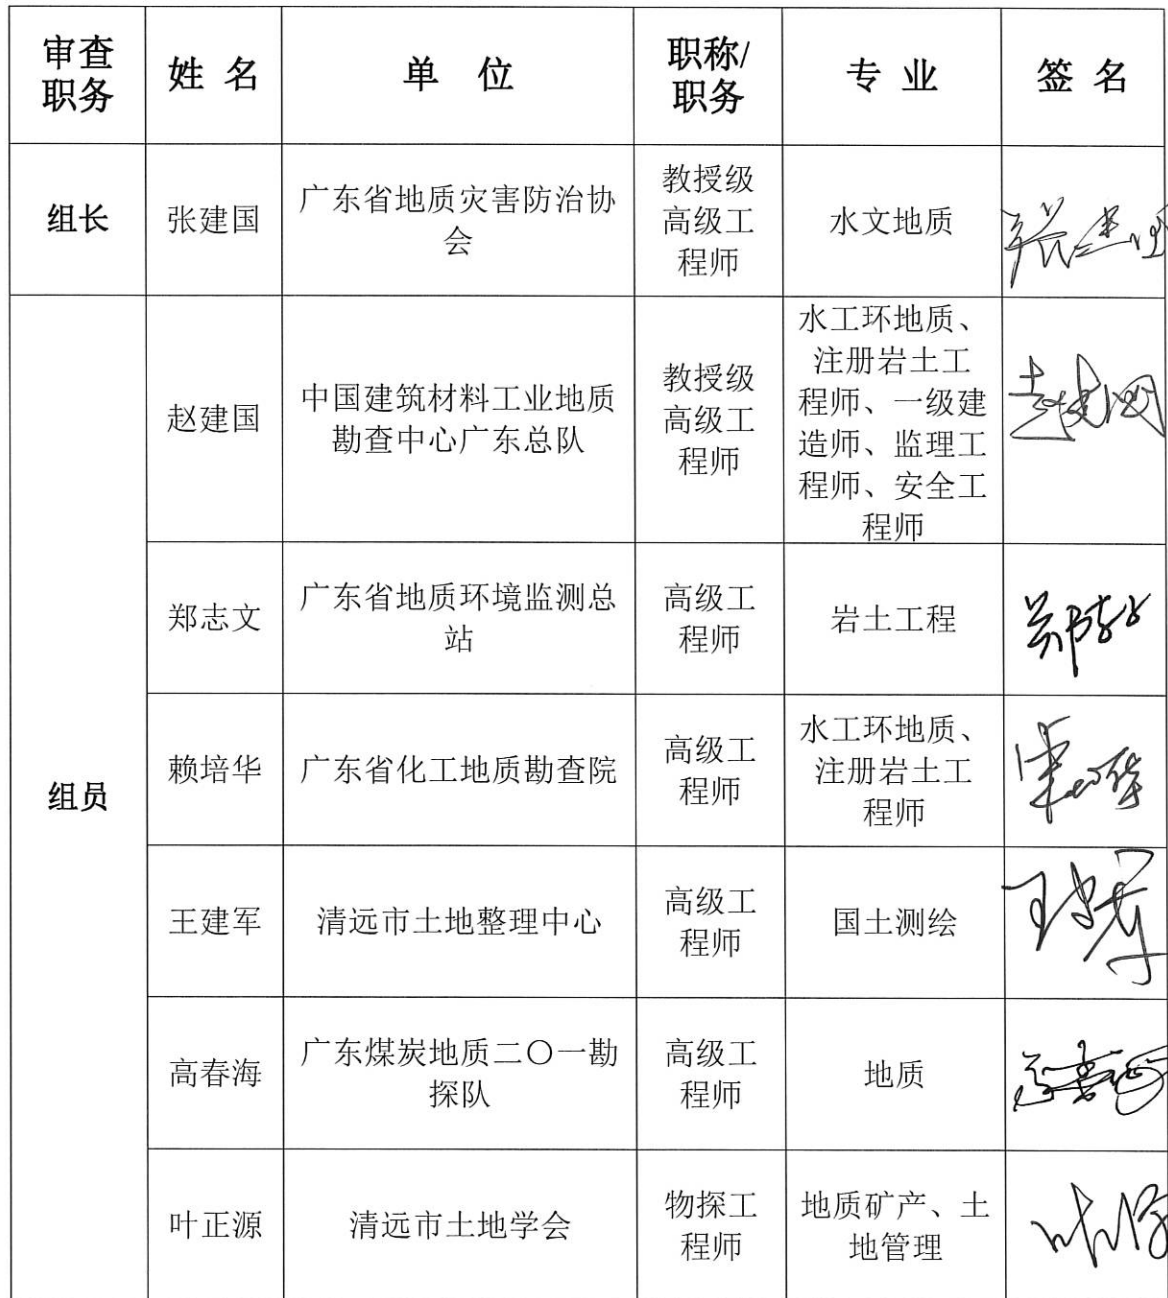 审查职务 姓 名 单 位 职称/职务 专 业 签 名
组长 张建国 广东省地质灾害防治协会 教授级高级工程师 水文地质 张建国
组员 赵建国 中国建筑材料工业地质勘查中心广东总队 教授级高级工程师 水工环地质、注册岩土工程师、一级建造师、监理工程师、安全工程师 赵建国
郑志文 广东省地质环境监测总站 高级工程师 岩土工程
赖培华 广东省化工地质勘查院 高级工程师 水工环地质、注册岩土工程师
王建军 清远市土地整理中心 高级工程师 国土测绘 王建军
高春海 广东煤炭地质二〇一勘探队 高级工程师 地质
叶正源 清远市土地学会 物探工程师 地质矿产、土地管理